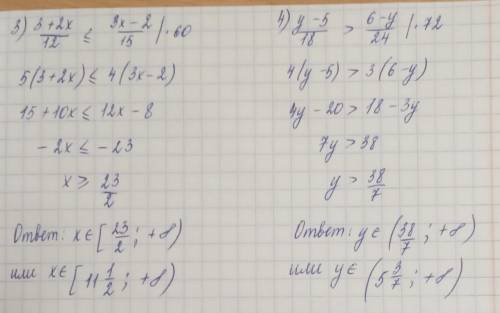 3) (3+2x)/12 ≤ (3x-2)/15 |·60
5(3+2x) ≤ 4(3x-2)
15+10x ≤ 12x-8
-2x ≤ -23
x ≥ 23/2
Ответ: x∈[23/2; +8)
или x∈[11 1/2; +8)
4) (y-5)/18 > (6-y)/24 |·72
4(y-5) > 3(6-y)
4y-20 > 18-3y
7y > 38
y > 38/7
Ответ: y∈(38/7; +8)
или y∈(5 3/7; +8)